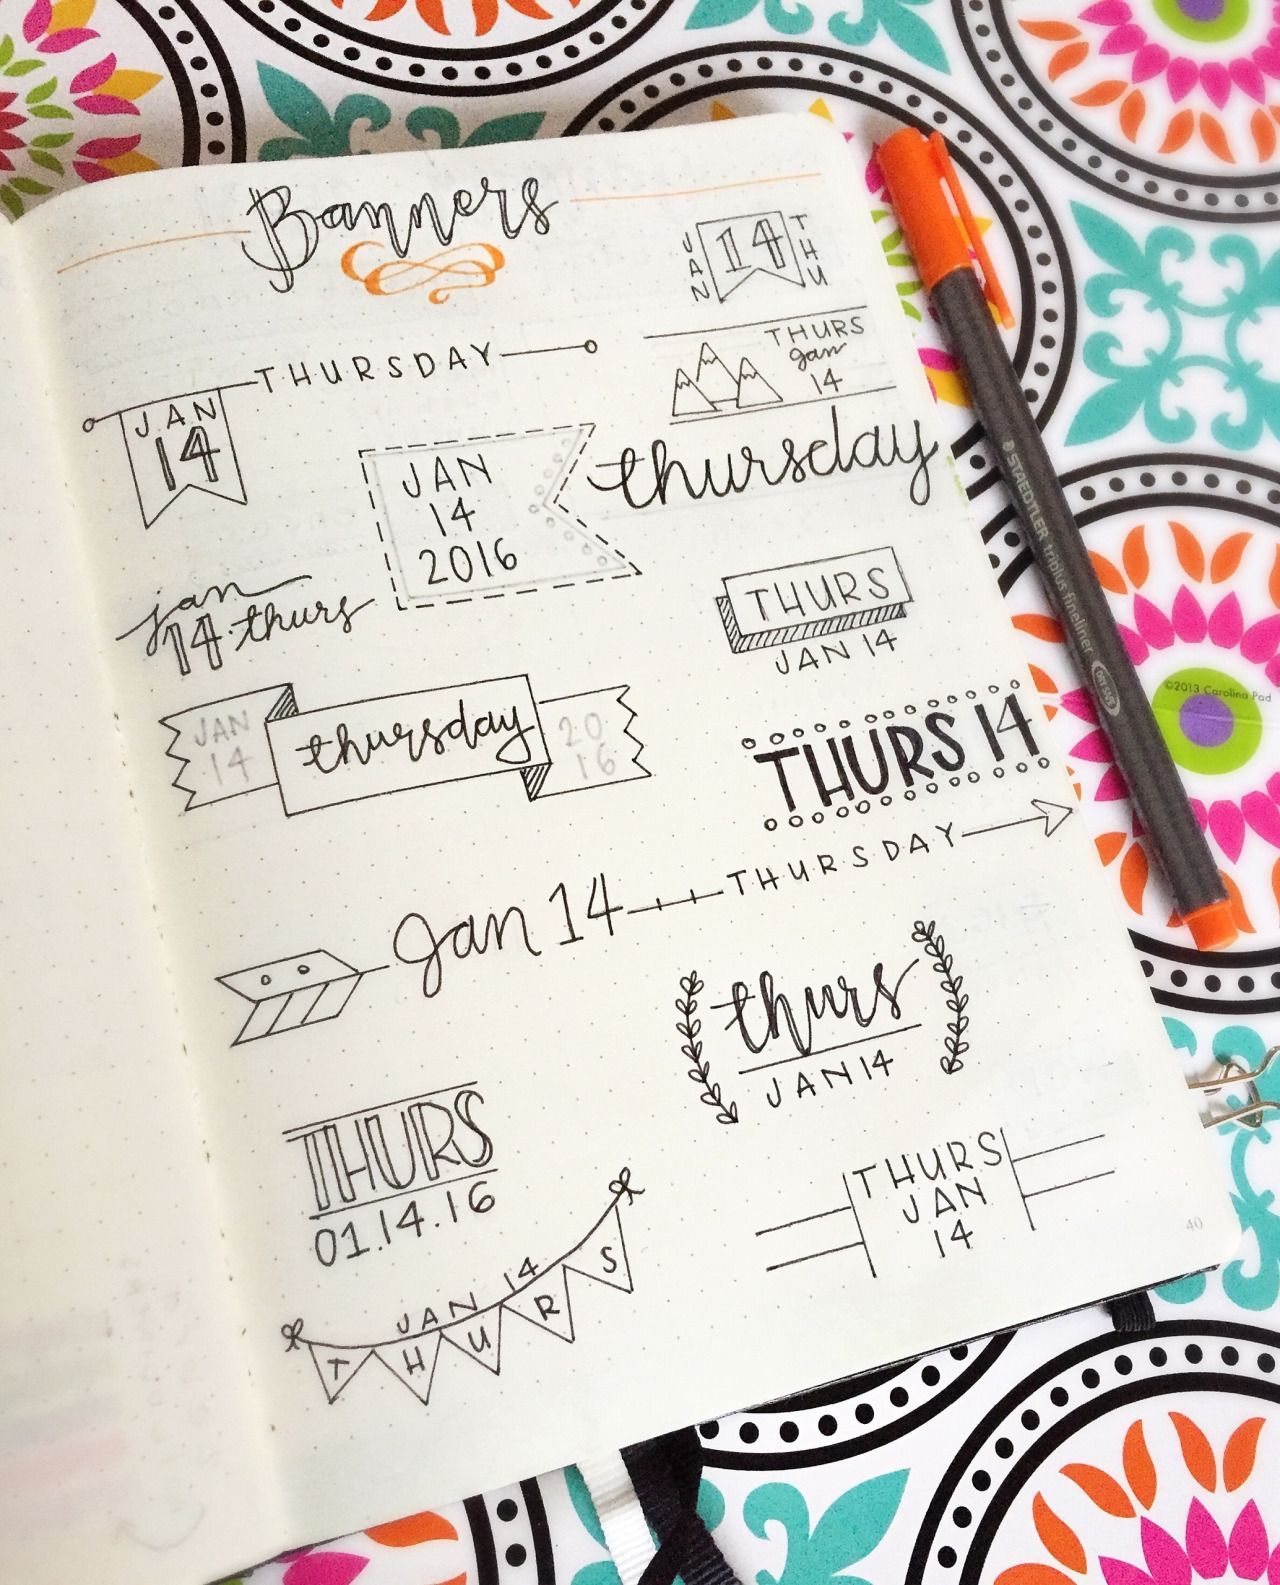 Banners
JAN
14
THU
THURSDAY
JAN
14
THURS
Jan
14
JAN
14
2016
thursday
jan
14 thurs
THURS
JAN 14
JAN
14
thursday
20
16
THURS 14
Jan 14 THURSDAY
thurs
JAN 14
THURS
01.14.16
THURS
JAN
14
JAN 14
THURS
40
STAEDTLER triplus fineliner
DRY SAFE
©2013 Carolina Pad